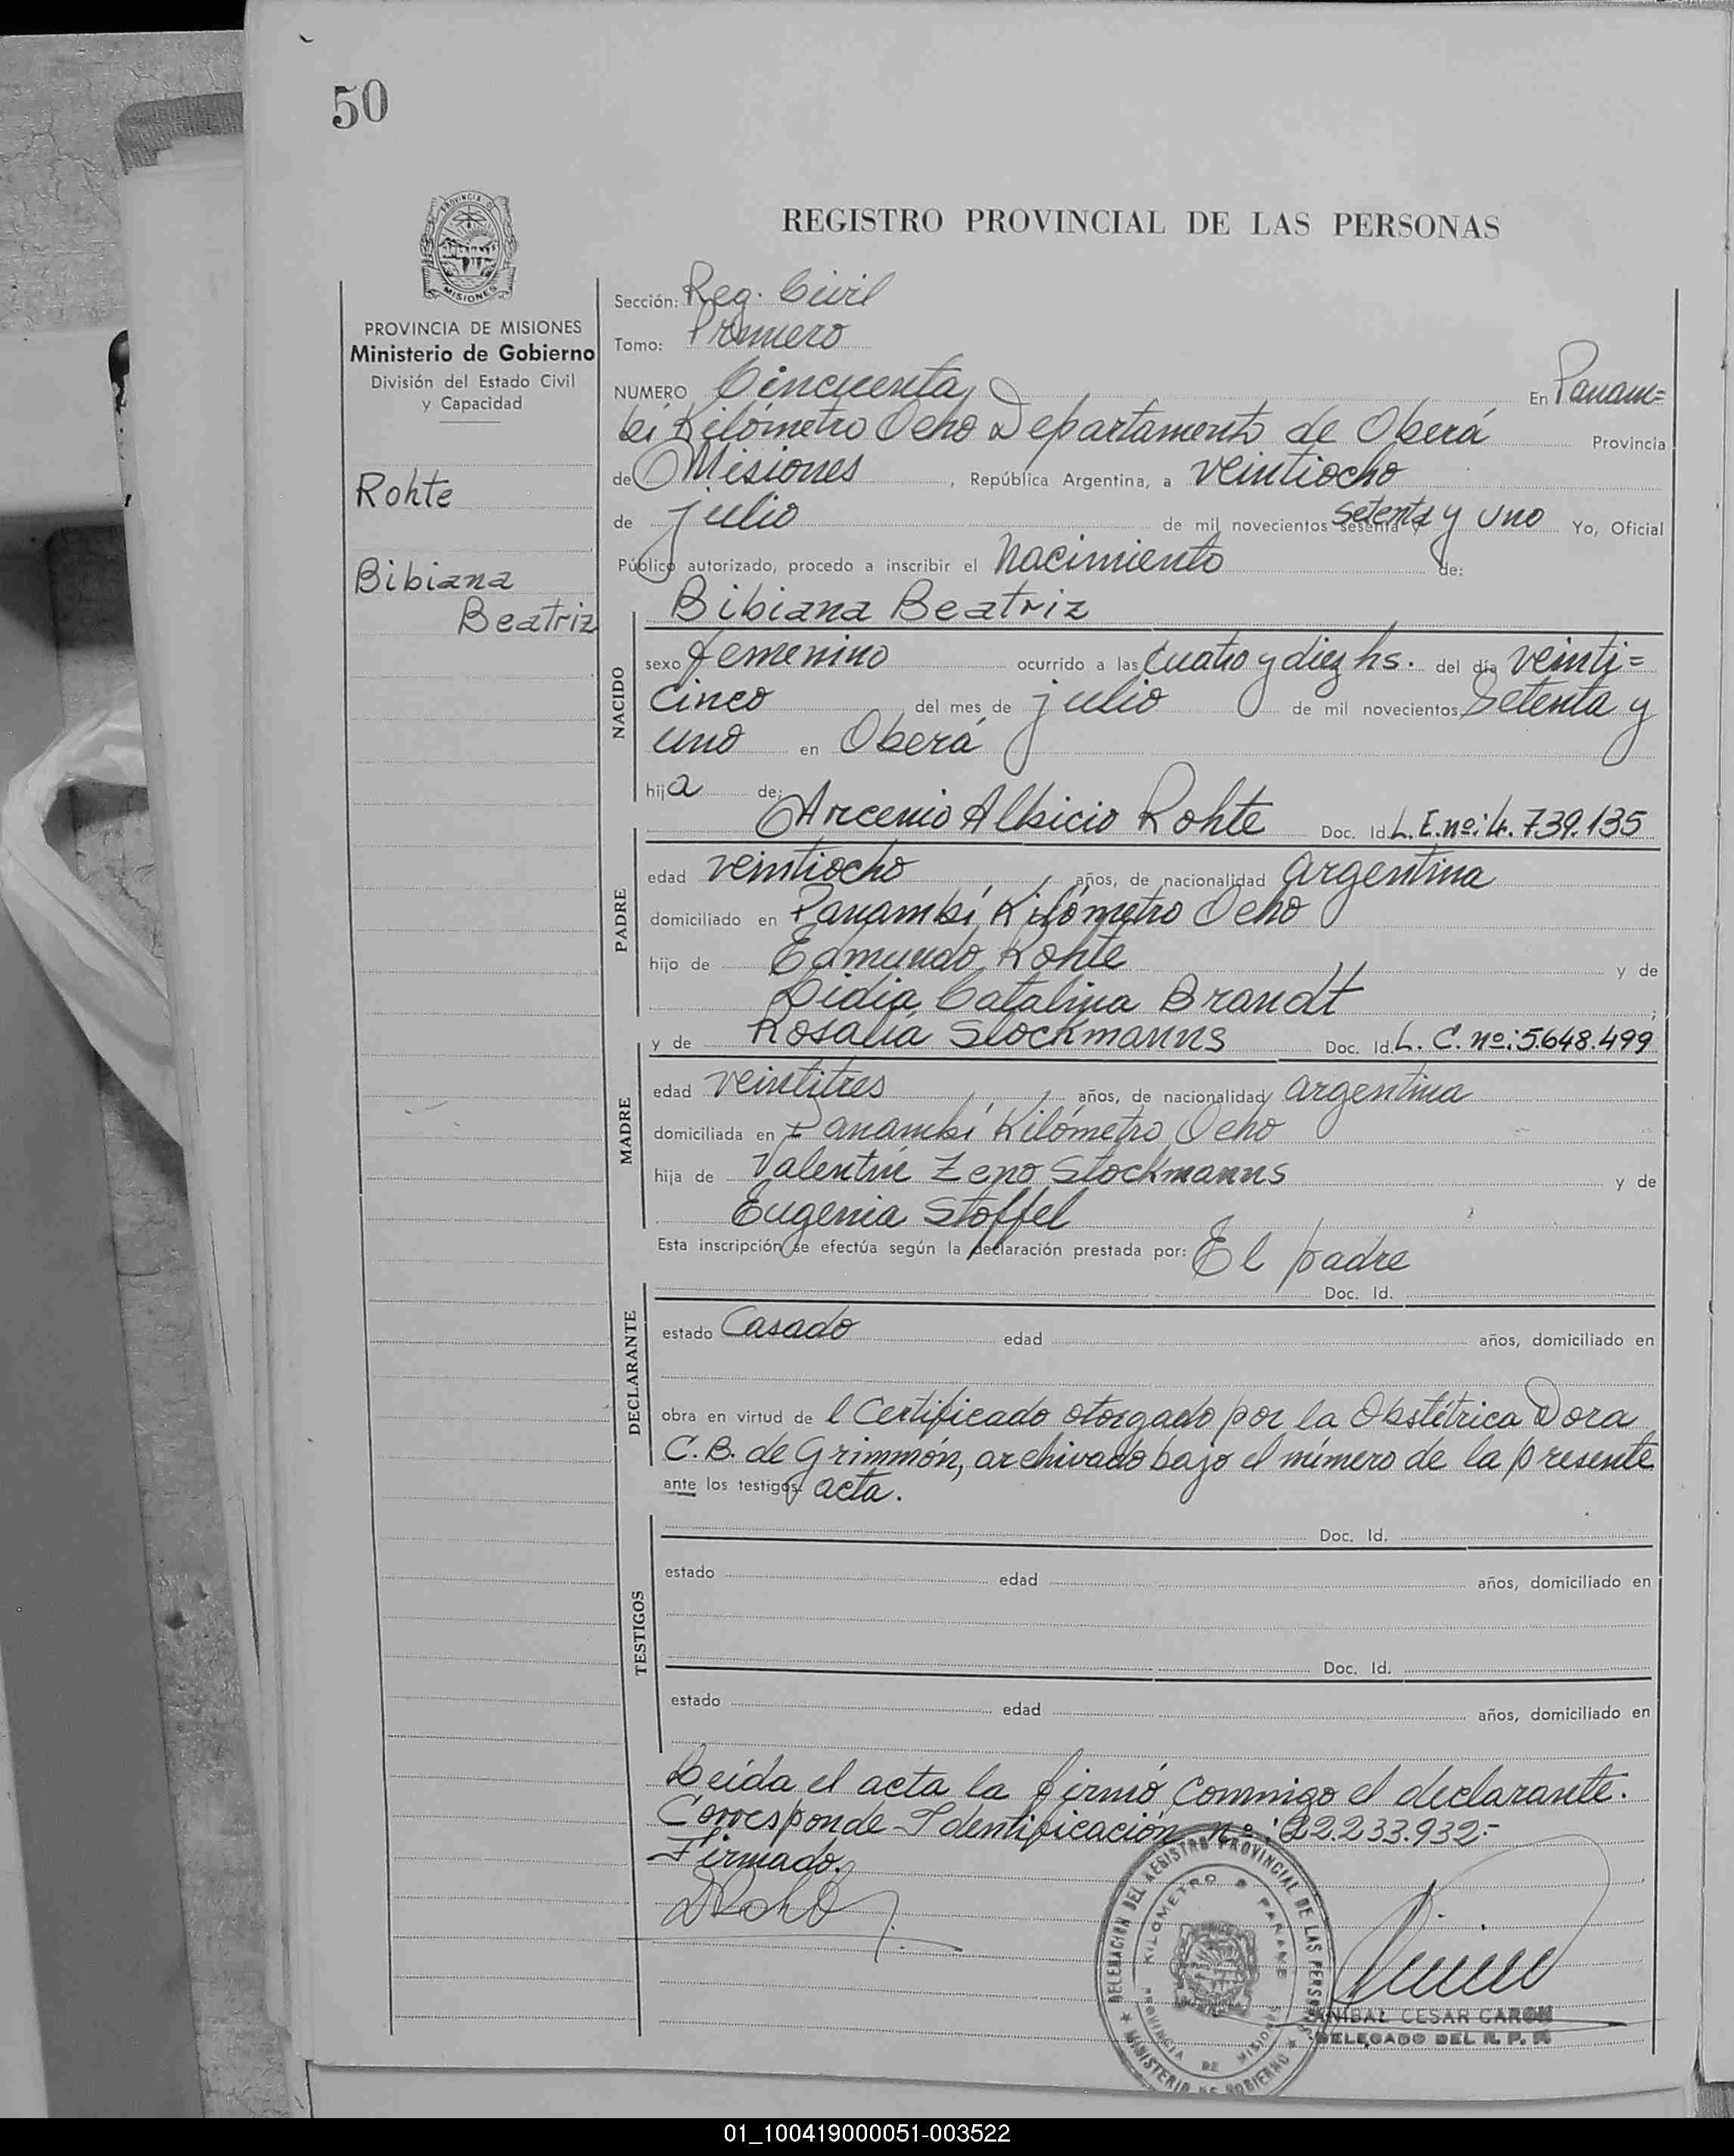 50
PROVINCIA DE
MISIONES
REGISTRO PROVINCIAL DE LAS PERSONAS
PROVINCIA DE MISIONES
Ministerio de Gobierno
División del Estado Civil
y Capacidad
Rohte
Bibiana
Beatriz
Sección: Reg. Civil
Tomo: Primero
NUMERO Cincuenta En Panam=
bí Kilómetro Ocho Departamento de Oberá Provincia
de Misiones, República Argentina, a veintiocho
de julio de mil novecientos sesenta y setenta y uno Yo, Oficial
Público autorizado, procedo a inscribir el nacimiento de:
NACIDO
Bibiana Beatriz
sexo femenino ocurrido a las cuatro y diez hs. del día veinti=
cinco del mes de julio de mil novecientos setenta y
uno en Oberá
hija de:
PADRE
Arcenio Albicio Rohte Doc. Id. L. E. nº: 4.739.135
edad veintiocho años, de nacionalidad argentina
domiciliado en Panambí Kilómetro Ocho
hijo de Edmundo Rohte y de
Lidia Catalina Brandt;
MADRE
y de Rosalía Stockmanns Doc. Id. L. C. nº: 5.648.499
edad veintitres, años, de nacionalidad argentina
domiciliada en Panambí Kilómetro Ocho
hija de Valentín Zeno Stockmanns y de
Eugenia Stoffel
Esta inscripción se efectúa según la declaración prestada por: El padre
DECLARANTE
Doc. Id.
estado Casado edad años, domiciliado en
obra en virtud de l Certificado otorgado por la Obstétrica Dora
C. B. de Grimmón, archivado bajo el número de la presente
ante los testigos: acta.
TESTIGOS
Doc. Id.
estado edad años, domiciliado en
Doc. Id.
estado edad años, domiciliado en
Leída el acta la firmó conmigo el declarante.
Corresponde Identificación nº: 22.233.932.-
Firmado.
DELEGACIÓN DEL REGISTRO PROVINCIAL DE LAS PERSONAS
KILOMETRO 8 PANAMBI
PROVINCIA DE MISIONES
MINISTERIO DE GOBIERNO
ANIBAL CESAR CARON
DELEGADO DEL R. P. P.
01_100419000051-003522